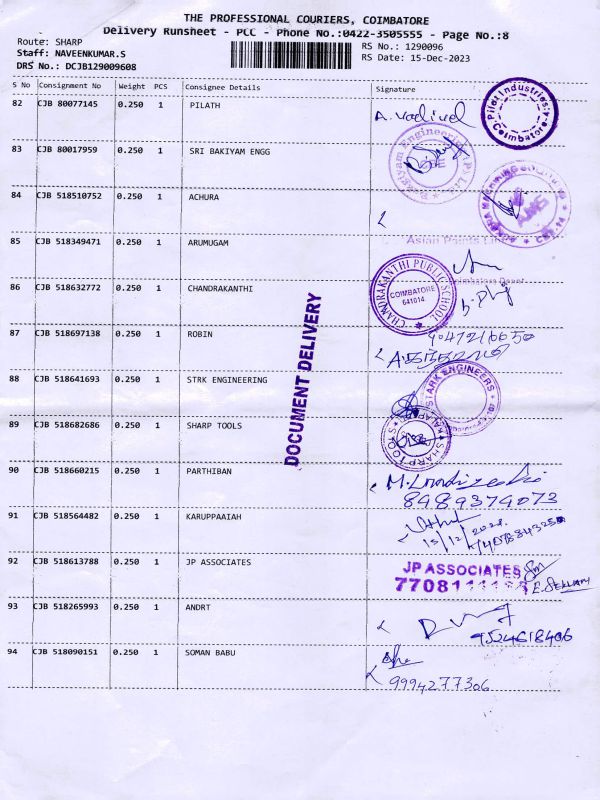 THE PROFESSIONAL COURIERS, COIMBATORE
Delivery Runsheet - PCC - Phone No.:0422-3505555 - Page No.:8
Route: SHARP
RS No.: 1290096
Staff: NAVEENKUMAR.S
RS Date: 15-Dec-2023
DRS No.: DCJB129009608
S No Consignment No Weight PCS Consignee Details Signature
82 CJB 80077145 0.250 1 PILATH
A. Vadivel
Pilot Industries Coimbatore
83 CJB 80017959 0.250 1 SRI BAKIYAM ENGG
84 CJB 518510752 0.250 1 ACHURA
85 CJB 518349471 0.250 1 ARUMUGAM
Asian Paints
86 CJB 518632772 0.250 1 CHANDRAKANTHI
CHANDRAKANTHI PUBLIC SCHOOL
COIMBATORE
641014
87 CJB 518697138 0.250 1 ROBIN
DOCUMENT DELIVERY
88 CJB 518641693 0.250 1 STRK ENGINEERING
STARK ENGINEERS
89 CJB 518682686 0.250 1 SHARP TOOLS
SHARP TOOLS
90 CJB 518660215 0.250 1 PARTHIBAN
8489374073
91 CJB 518564482 0.250 1 KARUPPAAIAH
92 CJB 518613788 0.250 1 JP ASSOCIATES
JP ASSOCIATES
93 CJB 518265993 0.250 1 ANDRT
9524618406
94 CJB 518090151 0.250 1 SOMAN BABU
9994277306